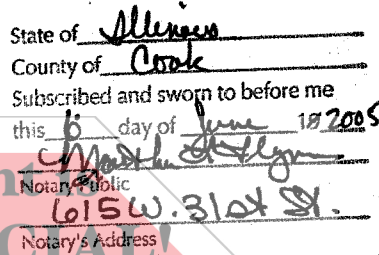 State of Illinois
County of Cook
Subscribed and sworn to before me
this 6 day of June 2005
Notary Public
615 W. 31st St.
Notary's Address